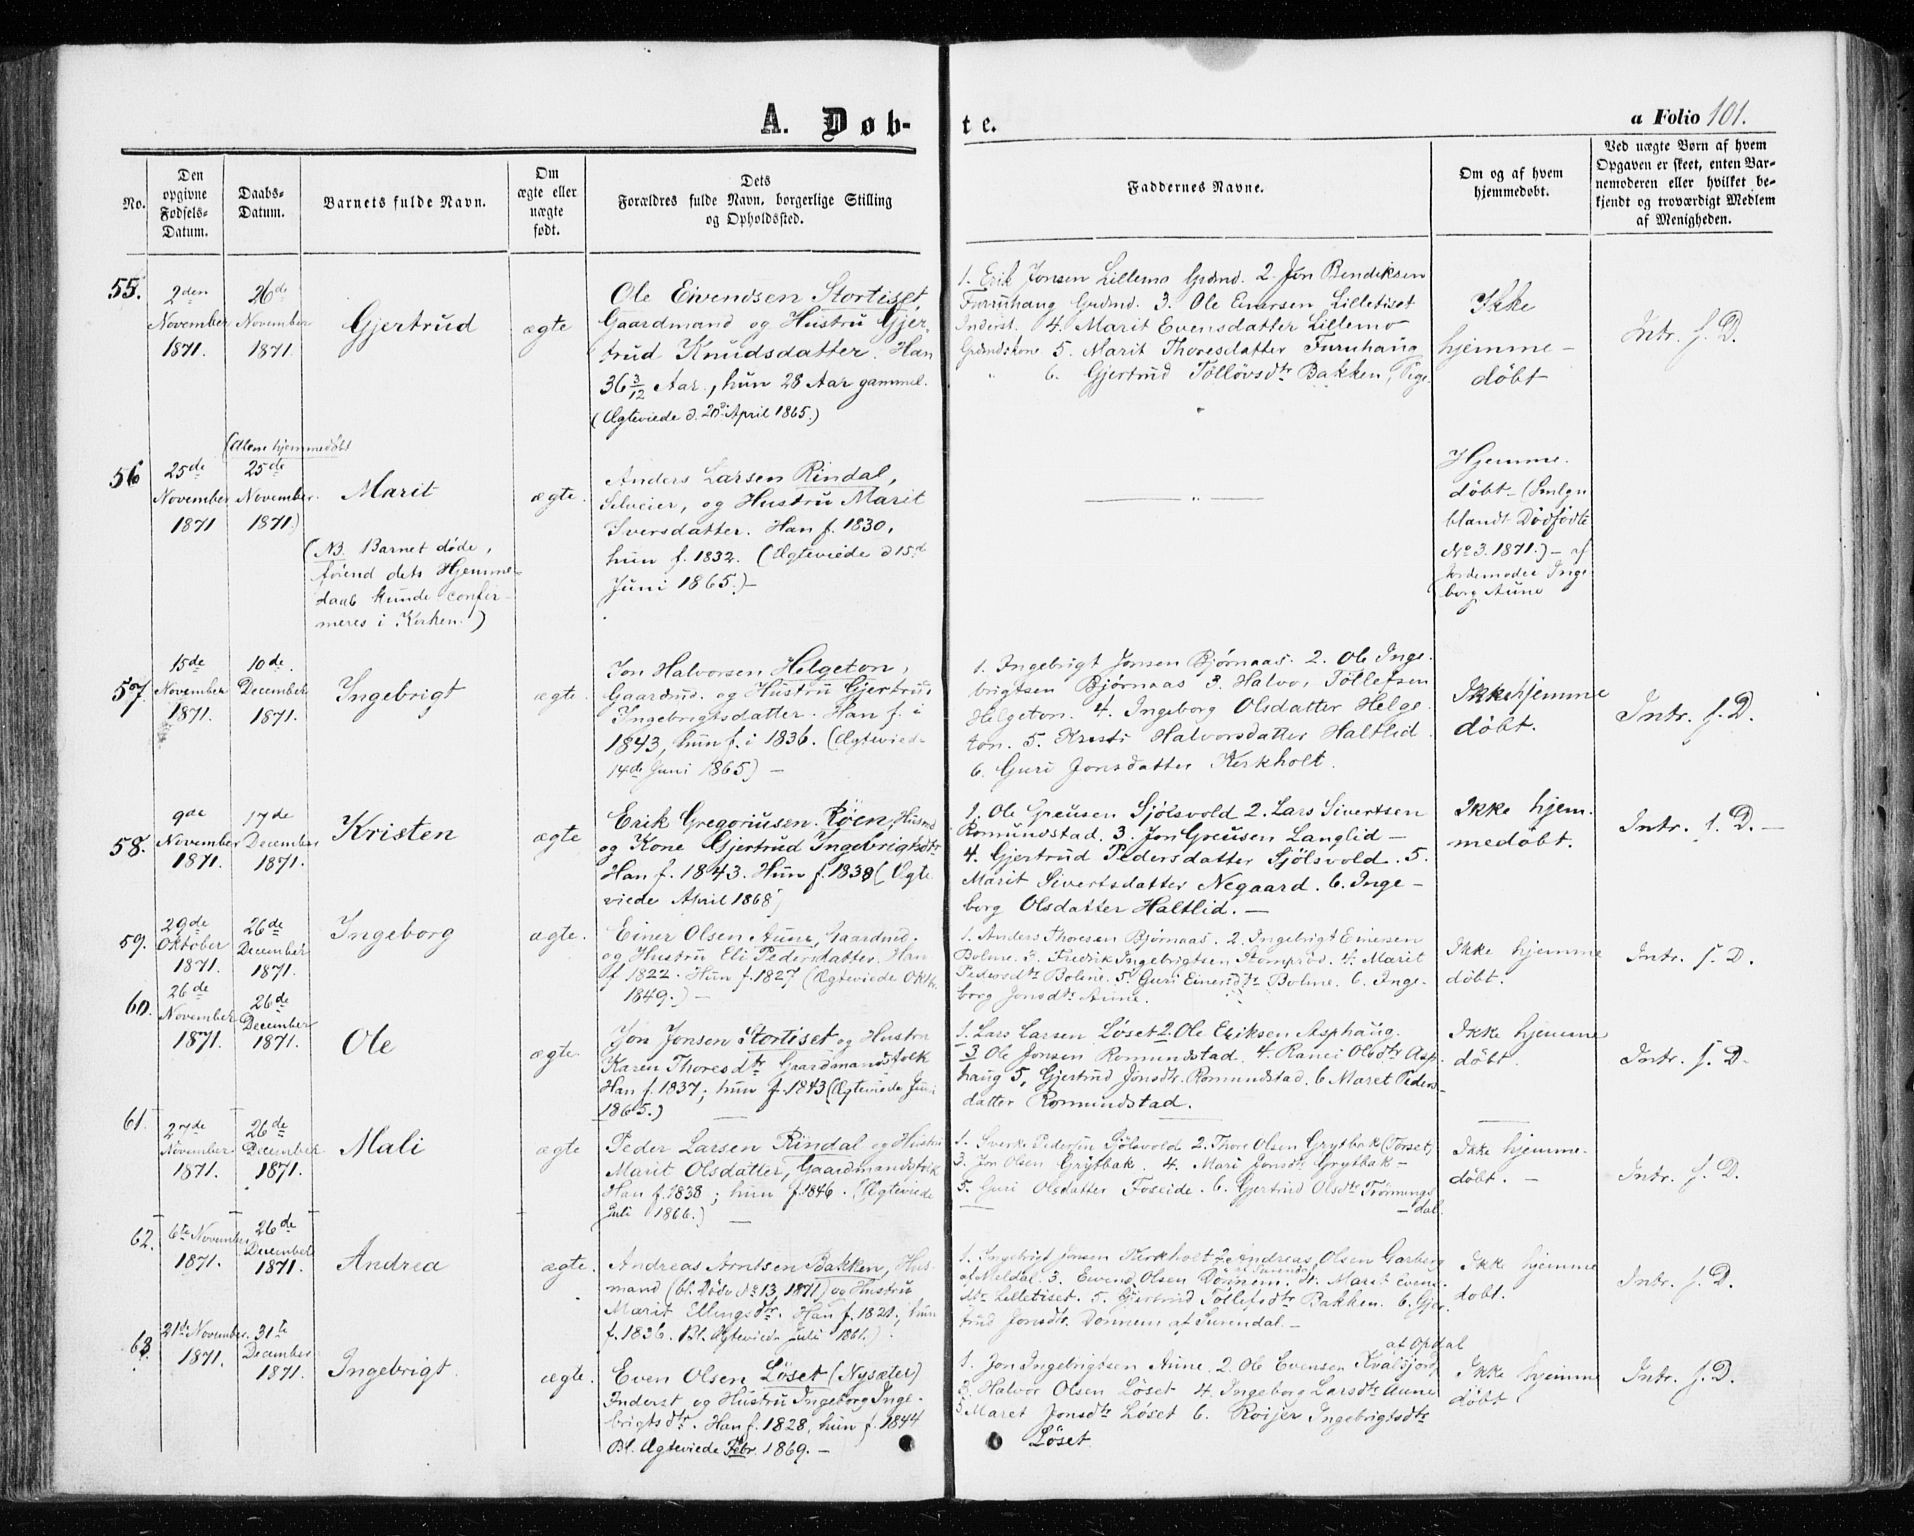 A. Døb-
te.
a Folio 101.
No.
Den opgivne Fødsels-Datum.
Daabs-Datum.
Barnets fulde Navn.
Om ægte eller uægte født.
Dets Forældres fulde Navn, borgerlige Stilling og Opholdssted.
Faddernes Navne.
Om og af hvem hjemmedøbt.
Ved uægte Børn af hvem Opgaven er skeet, enten Barnemoderen eller hvilket bekjendt og troværdigt Medlem af Menigheden.
55.
2den
November
1871.
26de
November
1871.
Gjertrud
ægte
Ole Eivendsen Stortiset,
Gaardmand og Hustru Gjer-
trud Knudsdatter. Han
36 3/12 Aar, hun 28 Aar gammel.
(Ægteviede d. April 1865.)
1. Erik Jonsen Lillemo Grdmd. 2. Jon Bendiksen
Furuhaug Grdmd. 3. Ole Einersen Lilletiset
Inderst. 4. Marit Evensdatter Lillemo
Grdmdskone 5. Marit Thoresdatter Furuhaug
" 6. Gjertrud Tollovsdtr Bakken, Pige.
Ikke
hjemme-
døbt
Intr. f. D.
56
25de
November
1871
(Alene hjemmedøbt
25de
November.
1871.)
Marit
(NB. Barnet døde,
førend dets Hjemme-
daab kunde confir-
meres i Kirken.)
ægte.
Anders Larsen Rindal,
Selveier, og Hustru Marit
Iversdatter. Han f. 1830,
hun f. 1832. (Ægteviede d 15d
Juni 1865.)-
"
Hjemme-
døbt - (Smlgn
blandt Dødfødte
No 3. 1871.) - af
Jordemoder Inge-
borg Aune
57.
15de
November
1871.
10de.
December
1871.
Ingebrigt
ægte.
Jon Halvorsen Helgeton,
Gaardmd. og Hustru Gjertrud
Ingebrigtsdatter. Han f. i
1843, hun f. i 1836. (Ægteviede
14de Juni 1865) -
1. Ingebrigt Jonsen Bjørnaas. 2. Ole Inge-
brigtsen Bjørnaas 3. Halvor Tøllefsen
Helgeton. 4. Ingeborg Olsdatter Helge-
ton. 5. Kristi Halvorsdatter Haltlid.
6. Guri Jonsdatter Kirkholt.
Ikke hjemme
døbt.
Intr. f. D.
58.
9de
November
1871.
17de
December
1871.
Kristen
ægte
Erik Gregoriusen Røen, Husmd
og Kone Gjertrud Ingebrigtsdtr
Han f. 1843. Hun f. 1838 (Ægte
viede April 1868)
1. Ole Greusen Sjølsvold 2. Lars Sivertsen
Romundstad. 3. Jon Greusen Langlid -
4. Gjertrud Pedersdatter Sjølsvold. 5.
Marit Sivertsdatter Negaard. 6. Inge-
borg Olsdatter Haltlid. -
Ikke hjem-
medøbt.
Intr. f. D. -
59.
29de
Oktober
1871.
26de
December
1871.
Ingeborg
ægte.
Einer Olsen Aune, Gaardmd.
og Hustru Eli Pedersdatter. Han
f. 1822. Hun f. 1827 (Ægteviede Oktb.
1849.) -
1. Anders Thoresen Bjørnaas. 2. Ingebrigt Einersen
Bolme. 3. Fredrik Ingebrigtsen Stomprød. 4. Marit
Pedersdtr Bolme. 5. Guri Einersdtr Bolme. 6. Inge-
borg Jonsdtr Aune.
Ikke hjemme
døbt.
Intr. f. D.
60.
26de
November
1871.
26de
December
1871.
Ole
ægte.
Jon Jonsen Stortiset og Hustru
Karen Thoresdtr Gaardmandsfolk
Han f. 1837; hun f. 1843 (Ægteviede Juni
1865.)
1. Lars Larsen Løset 2. Ole Eriksen Asphaug.
3 Ole Jonsen Romundstad. 4. Ranei Olsdtr Asp-
haug 5. Gjertrud Jonsdtr. Romundstad. 6 Maret Peders-
datter Romundstad.
Ikke hjemme
døbt.
Intr. f. D.
61.
27de
November
1871.
26de
December
1871.
Mali
ægte
Peder Larsen Rindal og Hustru
Marit Olsdatter, Gaardmandsfolk
Han f. 1838; hun f. 1846. (Ægteviede
Juli 1866.) -
1. Sivert Pedersen Sjølsvold 2. Thore Olsen Grytbak (Torset)
3. Jon Olsen Grytbak. 4. Mari Jonsdtr Grytbak -
5. Guri Olsdatter Foseide. 6. Gjertrud Olsdtr Trønnings
- dal.
Ikke hjemme-
døbt. -
Intr. f. D.
62.
6te November
1871.
26de
December
1871.
Andrea
ægte.
Andreas Arntsen Bakken, Hus-
mand (bl. Døde No 13, 1871) og Hustru
Marit Ellingsdtr. Han f. 1821, hun
f. 1836. Bl. Ægteviede Juli 1861.)
1. Ingebrigt Jonsen Kirkholt 2. Andreas Olsen Garberg
af Meldal. 3. Eivend Olsen Dønnem. 4. Marit Evens-
dtr. Lilletiset. 5. Gjertrud Tøllefsdtr Bakken. 6. Gjer-
trud Jonsdtr. Dønnem af Surendal. -
Ikke hjemme
døbt.
Intr. f. D.
63.
21de November.
1871.
31te
December
1871.
Ingebrigt.
ægte.
Even Olsen Løset (Nysæter)
Inderst og Hustru Ingeborg Inge-
brigtsdtr. Han f. 1828, hun f. 1844
Bl. Ægteviede Febr. 1869. -
af Opdal
1. Jon Ingebrigtsen Aune. 2. Ole Evensen Kvalsjord,
3. Halvor Olsen Løset 4. Ingeborg Larsdtr Aune
5 Maret Jonsdtr Løset 6. Roijer Ingebrigtsdtr
Løset
Ikke hjemme
døbt.
Intr. f. D.